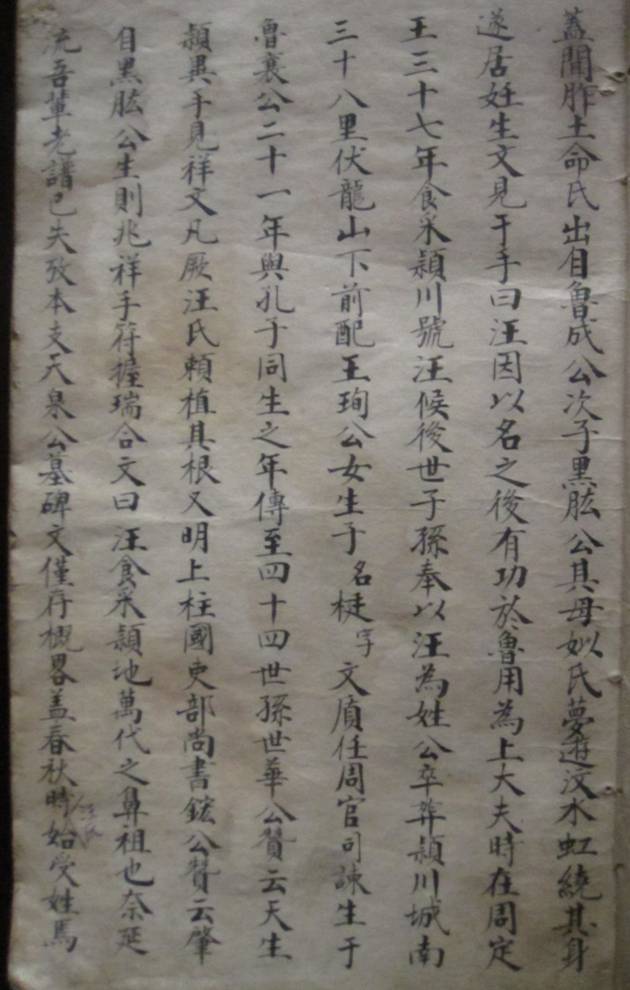 蓋聞胙土命氏出自魯成公次子黑肱公其母姒氏夢遊汶水虹繞其身
遂居妊生文見于手曰汪因以名之後有功於魯用為上大夫時在周定
王三十七年食采潁川號汪候後世子孫奉以汪為姓公卒葬潁川城南
三十八里伏龍山下前配王珣公女生子名梃字文質任周官司諫生于
魯襄公二十一年與孔子同生之年傳至四十四世孫世華公贊云天生
潁異手見祥文凡厥汪氏賴植其根又明上柱國吏部尚書鋐公贊云肇
自黑肱公生則兆祥手符握瑞合文曰汪食采潁地萬代之鼻祖也奈延
流吾輩老譜已失攷本支天泉公墓碑文僅存概畧盖春秋時始受姓焉